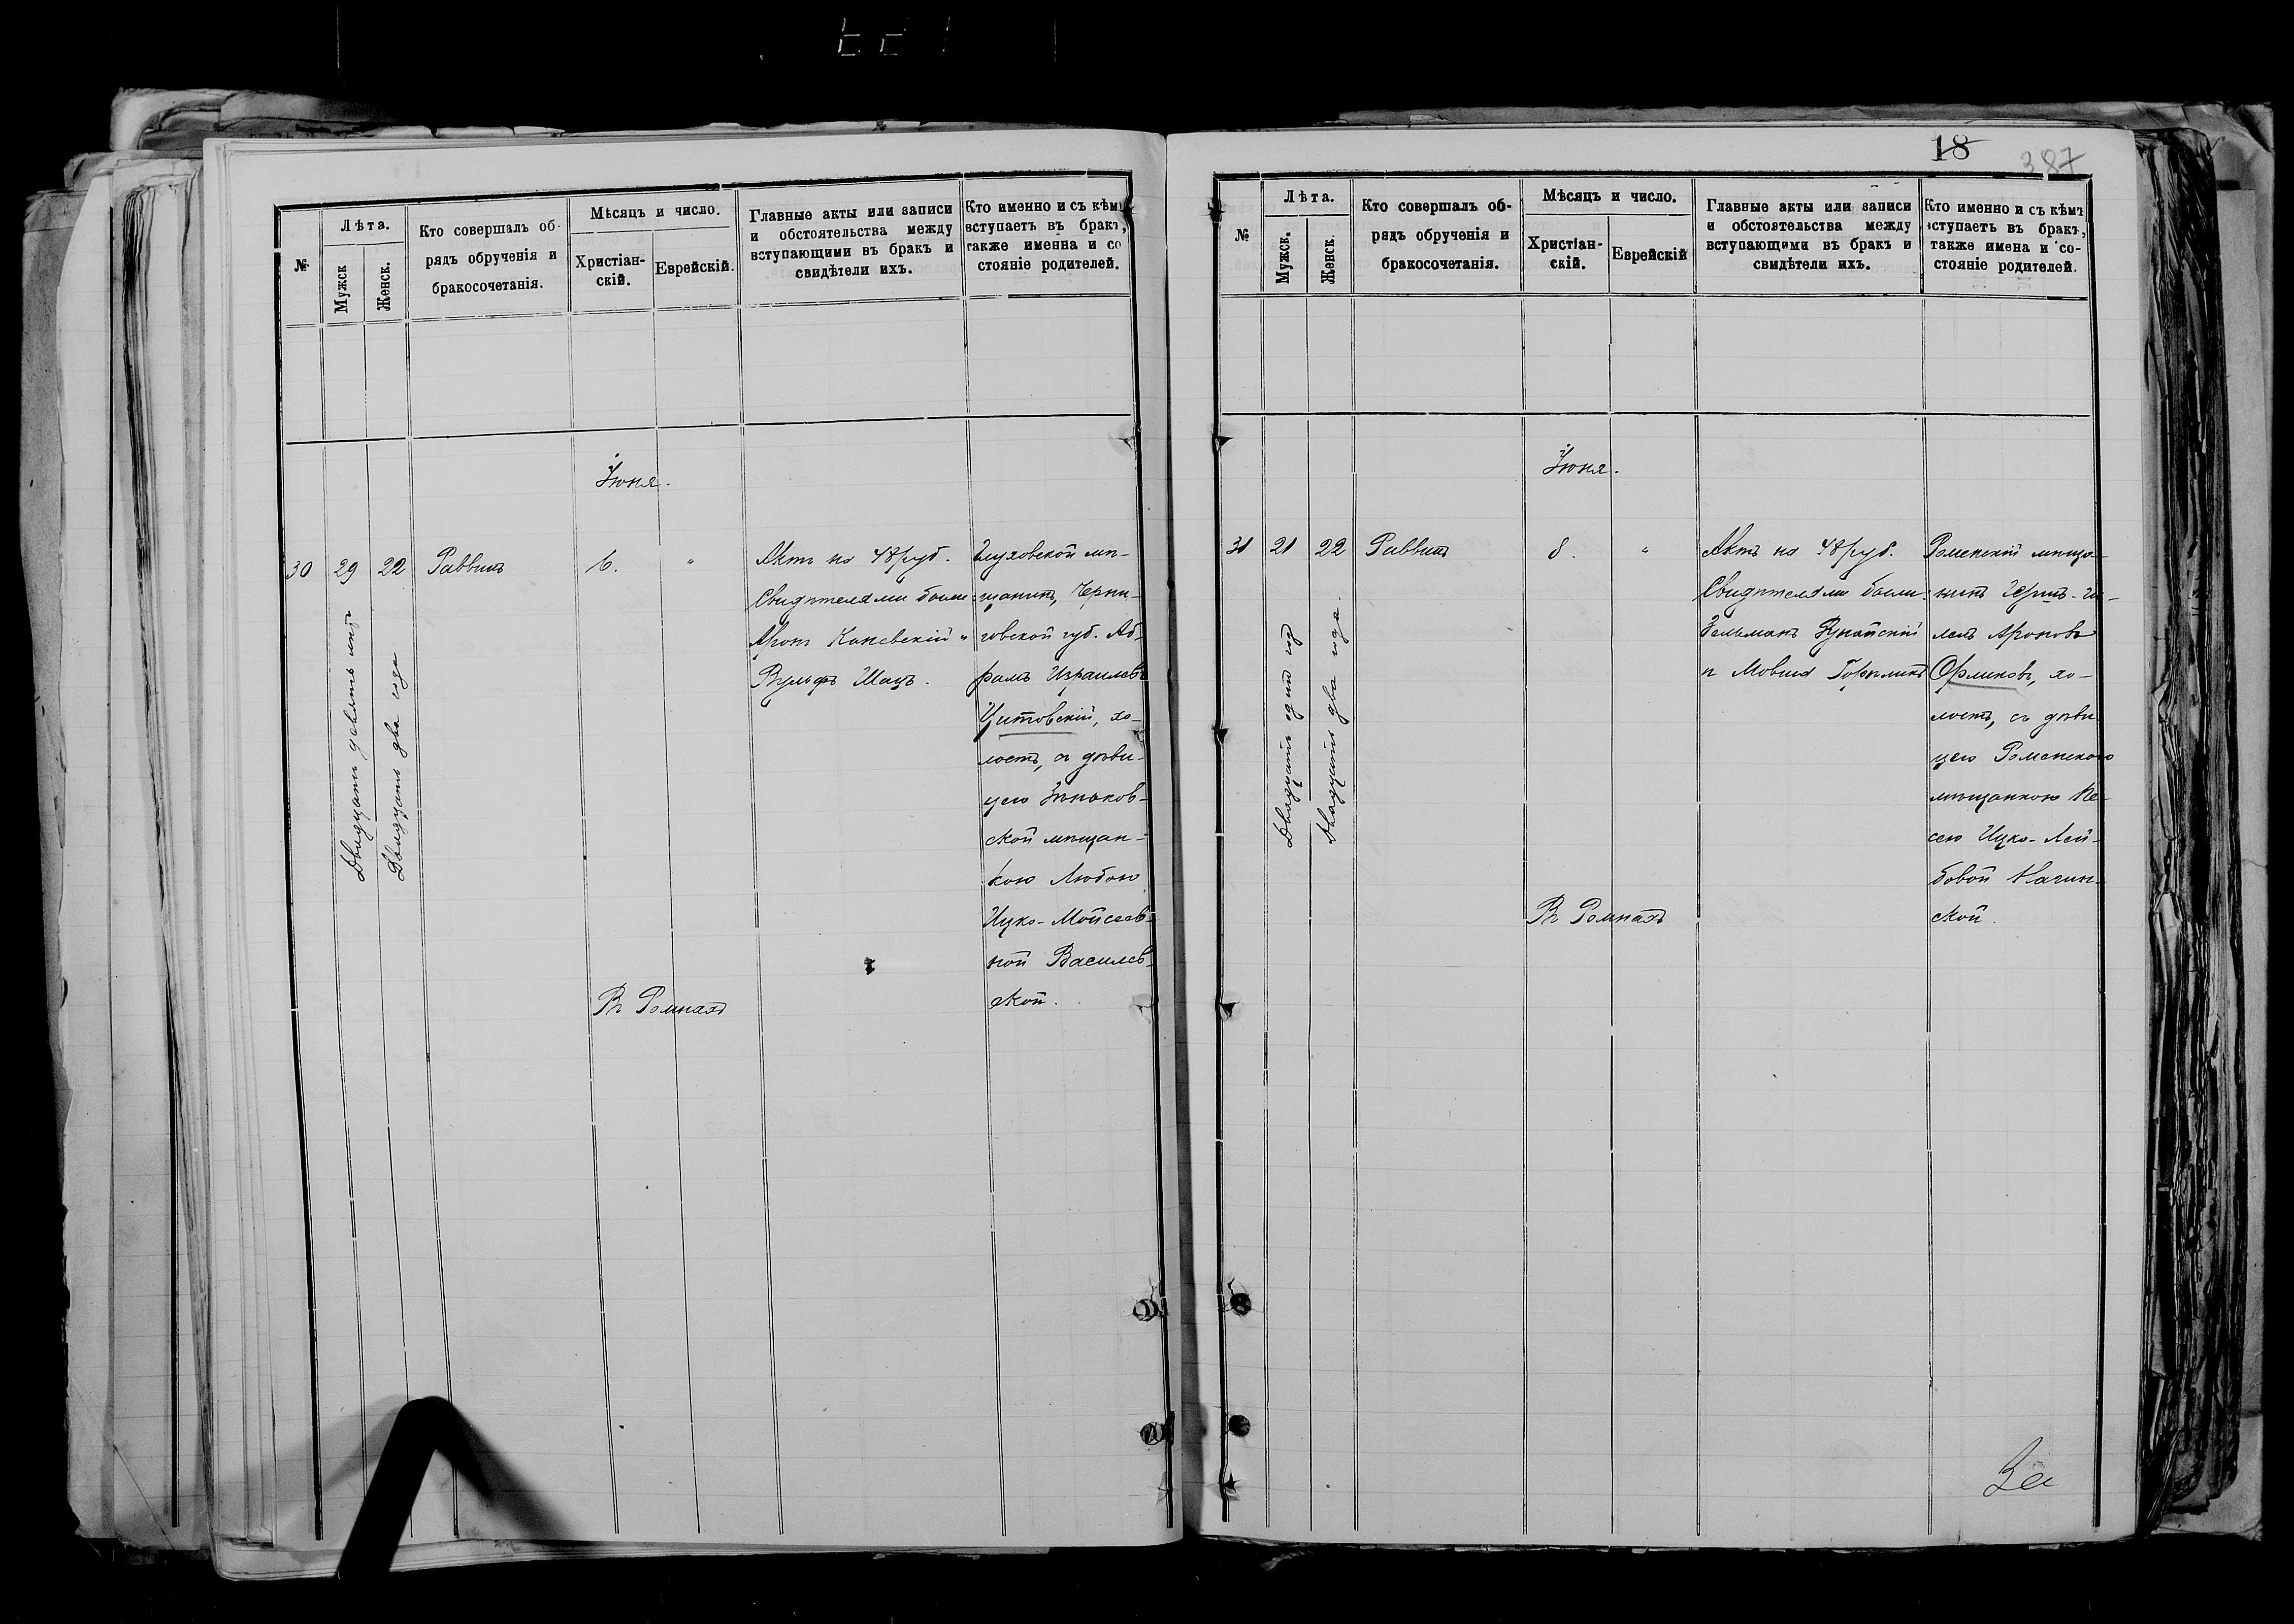 №
Лѣта.
Мужск
Женск.
Кто совершалъ об-
рядъ обрученія и
бракосочетанія.
Мѣсяцъ и число.
Христіан-
скій.
Еврейскій.
Главные акты или записи
и обстоятельства между
вступающими въ бракъ и
свидѣтели ихъ.
Кто именно и съ кѣмъ
вступаетъ въ бракъ,
также имена и со
стояніе родителей.
Іюня.
30
29
22
Двадцать девять лѣтъ
Двадцать два года
Раввинъ
6.
"
Актъ на 48 руб.
Свидѣтелями были:
Аронъ Каневскій и
Вульфъ Шацъ.
Глуховской мѣ-
щанинъ, Черни-
говской губ. Аб-
рамъ Израилевъ
Цитовскій, хо-
лостъ, съ дѣви-
цею Зѣньков-
ской мѣщан-
кою Любою
Ицко-Мойсеев-
ной Василев-
ской.
Въ Ромнахъ
18
387
№
Лѣта.
Мужск.
Женск.
Кто совершалъ об-
рядъ обрученія и
бракосочетанія.
Мѣсяцъ и число.
Христіан-
скій.
Еврейскій
Главные акты или записи
и обстоятельства между
вступающими въ бракъ и
свидѣтели ихъ.
Кто именно и съ кѣмъ
вступаетъ въ бракъ,
также имена и со-
стояніе родителей.
Іюня.
31
21
22
Двадцать одинъ годъ
Двадцать два года.
Раввинъ
8.
"
Актъ на 48 руб.
Свидѣтелями были:
Зельманъ
и Мовша
Роменскій мѣща-
нинъ
Ароновъ
Орликовъ, хо-
лостъ, съ дѣви-
цею Роменскою
мѣщанкою Пе-
сею Ицко-Лей-
бовой Нагин-
ской.
Въ Ромнахъ
За